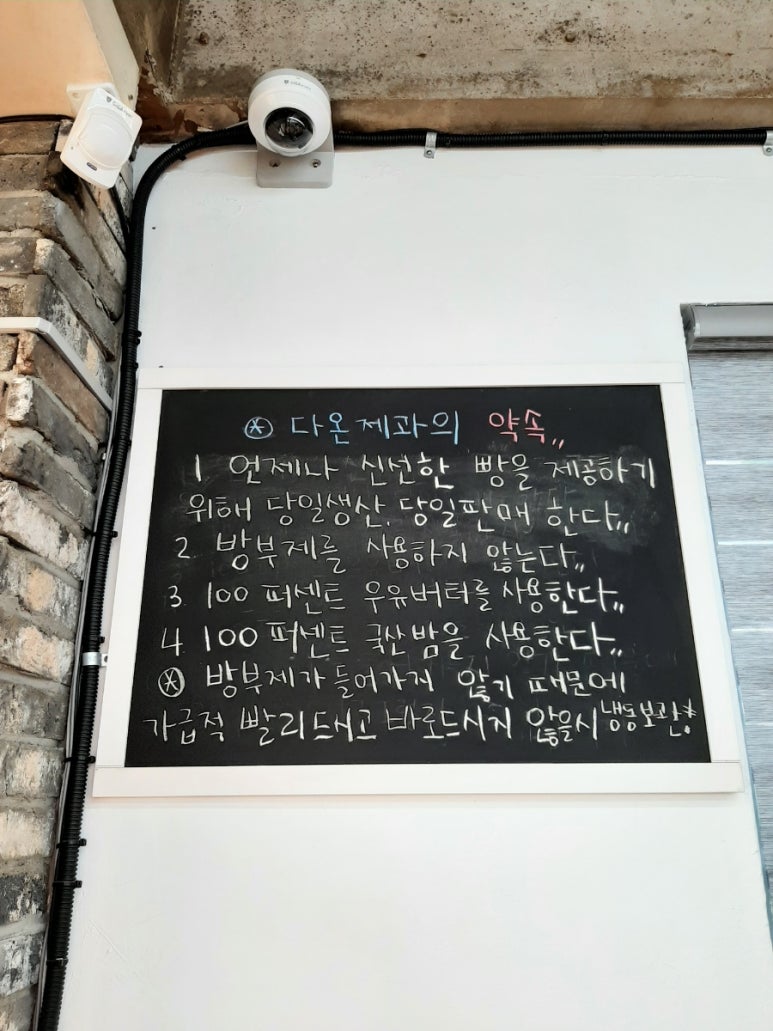 ⊛ 다온제과의 약속,,
1 언제나 신선한 빵을 제공하기
위해 당일생산, 당일판매 한다,,
2. 방부제를 사용하지 않는다,,
3. 100 퍼센트 우유버터를 사용한다,,
4. 100 퍼센트 국산밤을 사용한다,,
⊛ 방부제가 들어가지 않기 때문에
가급적 빨리드시고 바로드시지 않을시 냉동보관!*